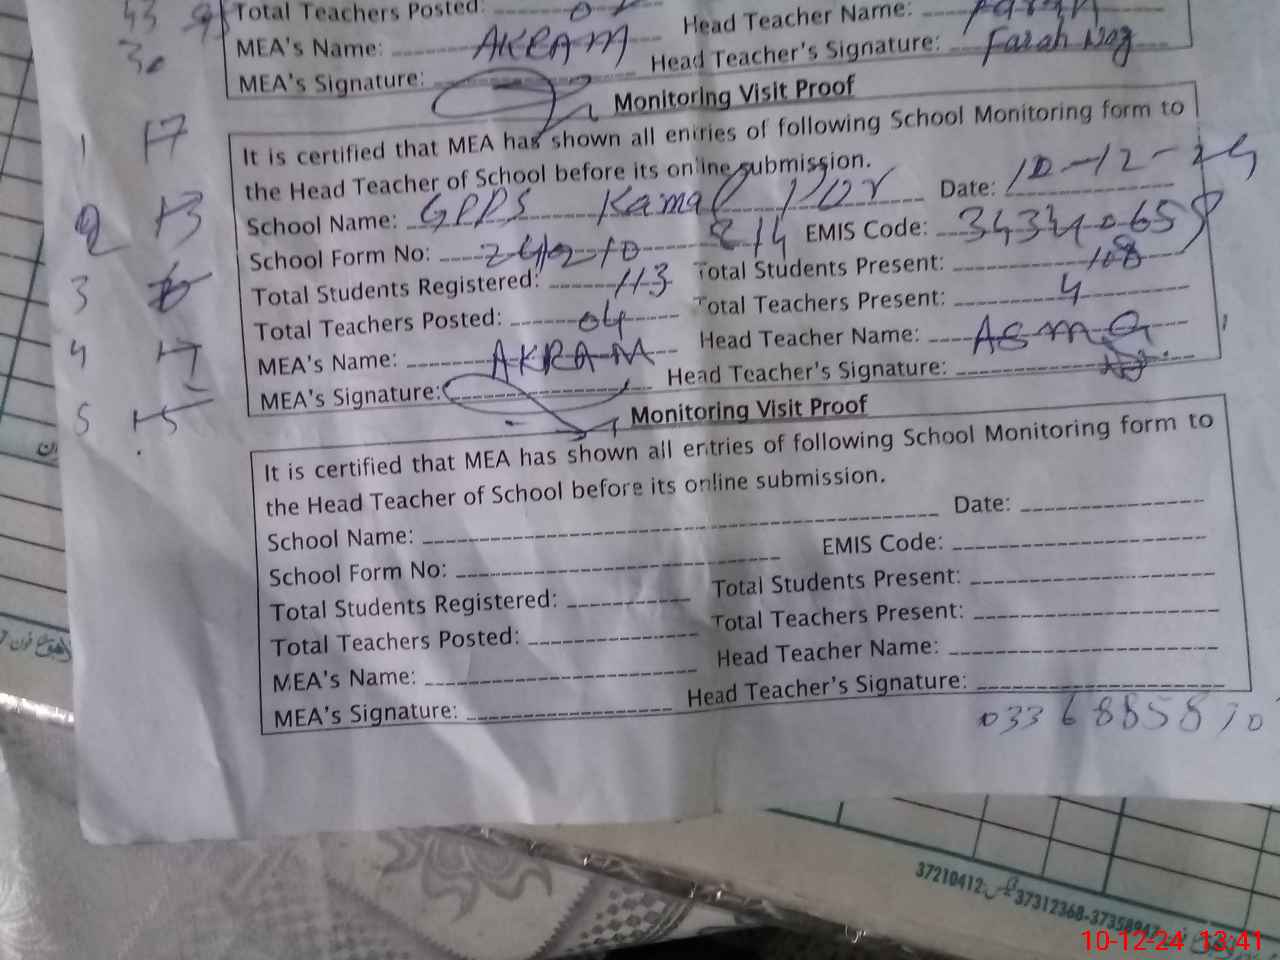 Total Teachers Posted:
Head Teacher Name: Farah
MEA's Name: AKRAM
Head Teacher's Signature: Farah Naz
MEA's Signature:
Monitoring Visit Proof
It is certified that MEA has shown all entries of following School Monitoring form to
the Head Teacher of School before its online submission.
School Name: GPPS Kamal Pur Date: 10-12-24
School Form No: EMIS Code:
Total Students Registered: 113 Total Students Present: 108
Total Teachers Posted: 04 Total Teachers Present: 4
MEA's Name: AKRAM Head Teacher Name: Asma
MEA's Signature: Head Teacher's Signature:
1 17
2 13
3
4 17
5 15
Monitoring Visit Proof
It is certified that MEA has shown all entries of following School Monitoring form to
the Head Teacher of School before its online submission.
School Name: Date:
School Form No: EMIS Code:
Total Students Registered: Total Students Present:
Total Teachers Posted: Total Teachers Present:
MEA's Name: Head Teacher Name:
MEA's Signature: Head Teacher's Signature:
03368858710
37210412
37312368-37358947
10-12-24 13:41